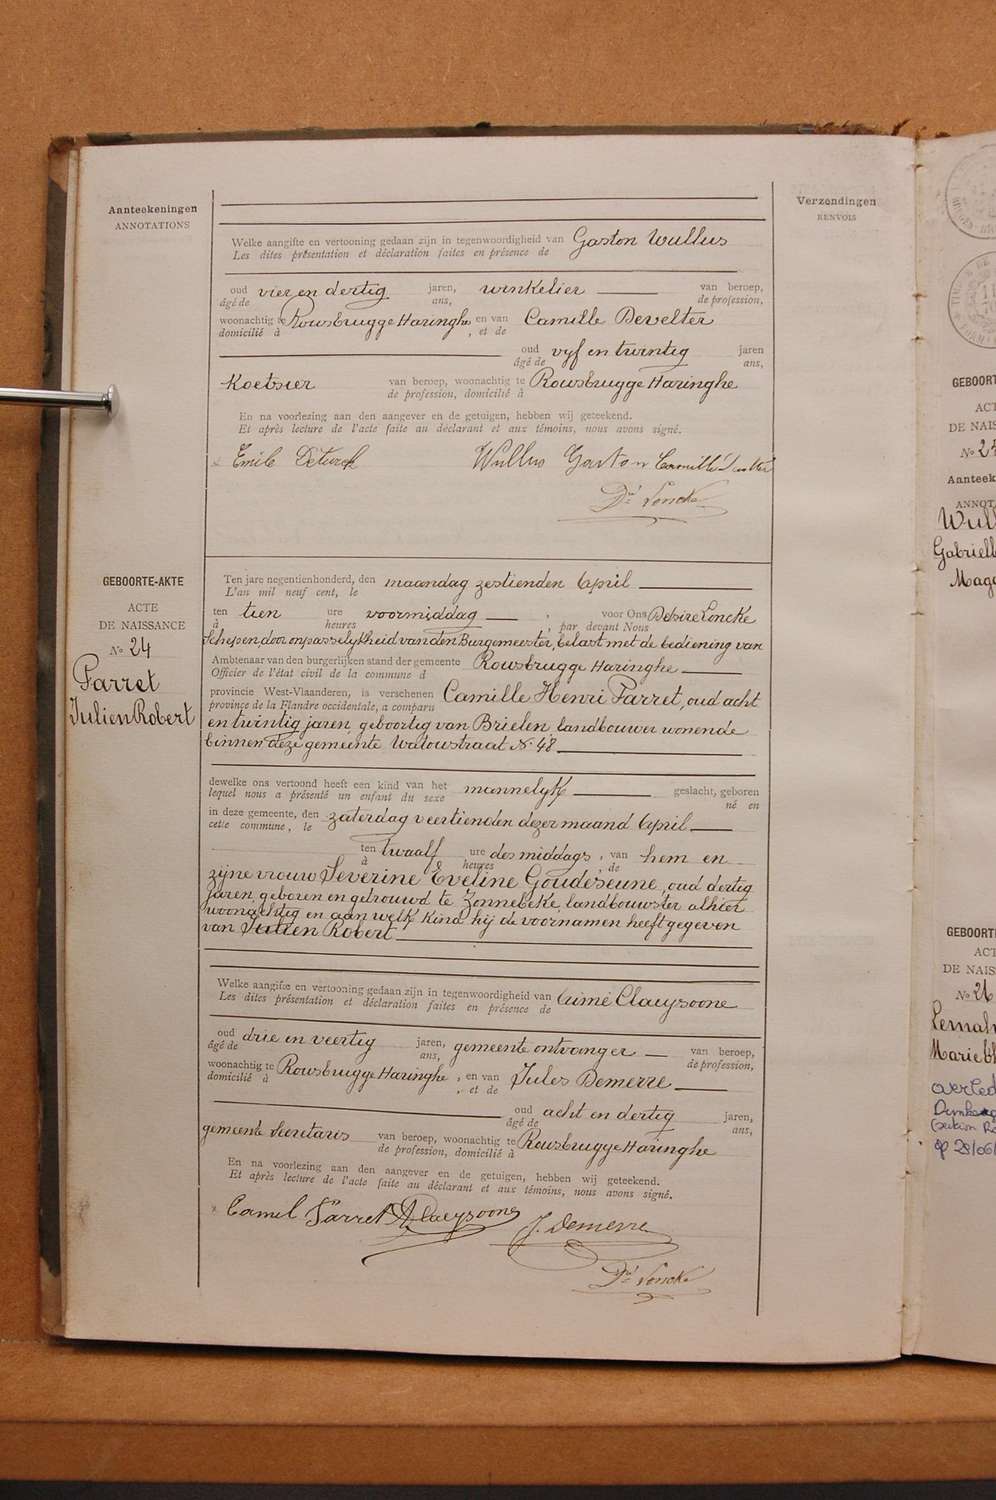 Aanteekeningen
ANNOTATIONS
Verzendingen
RENVOIS
Welke aangifte en vertooning gedaan zijn in tegenwoordigheid van Gaston Wullus
Les dites présentation et déclaration faites en présence de
oud vier en dertig jaren, winkelier van beroep,
âgé de ans, de profession,
woonachtig te Rousbrugge Haringhe, en van Camille Develter
domicilié à , et de
oud vyf en twintig jaren
âgé de ans,
Koetsier van beroep, woonachtig te Rousbrugge Haringhe
de profession, domicilié à
En na voorlezing aan den aangever en de getuigen, hebben wij geteekend.
Et après lecture de l'acte faite au déclarant et aux témoins, nous avons signé.
Emile Deturck Wullus Gaston Camille
Dré Loncke
GEBOORTE-AKTE
ACTE
DE NAISSANCE
No 24
Parret
Julien Robert
Ten jare negentienhonderd, den maandag zestienden April
L'an mil neuf cent, le
ten tien ure voormiddag , voor Ons Desiré Loncke
à heures , par devant Nous
Schepen, door onpasselykheid van den Burgemeester, belast met de bediening van
Ambtenaar van den burgerlijken stand der gemeente Rousbrugge Haringhe
Officier de l'état civil de la commune d
provincie West-Vlaanderen, is verschenen Camille Henri Parret, oud acht
province de la Flandre occidentale, a comparu
en twintig jaren, geboortig van Brielen landbouwer wonende
binnen deze gemeente Watoustraat No 48
dewelke ons vertoond heeft een kind van het mannelyk geslacht, geboren
lequel nous a présenté un enfant du sexe né en
in deze gemeente, den zaterdag veertienden dezer maand April
cette commune, le
ten twaalf ure des middags, van hem en
à heures , de
zijne vrouw Severine Eveline Goudeseune, oud dertig
jaren, geboren en getrouwd te Zonnebeke, landbouwster alhier
woonachtig en aan welk kind hij de voornamen heeft gegeven
van Julien Robert
Welke aangifte en vertooning gedaan zijn in tegenwoordigheid van Aimé Claeysoone
Les dites présentation et déclaration faites en présence de
oud drie en veertig jaren, gemeente ontvanger van beroep,
âgé de ans, de profession,
woonachtig te Rousbrugge Haringhe, en van Jules Demerre
domicilié à , et de
oud acht en dertig jaren,
âgé de ans,
gemeente secretaris van beroep, woonachtig te Rousbrugge Haringhe
de profession, domicilié à
En na voorlezing aan den aangever en de getuigen, hebben wij geteekend.
Et après lecture de l'acte faite au déclarant et aux témoins, nous avons signé.
Camiel Parret A. Claeysoone
J. Demerre
Dré Loncke
GEBOORT
ACT
DE NAIS
No 25
Aanteek
ANNOT
Wull
Gabriell
Mag
GEBOORT
ACT
DE NAIS
No 26
Lemah
Marie
overled
op 28/06/